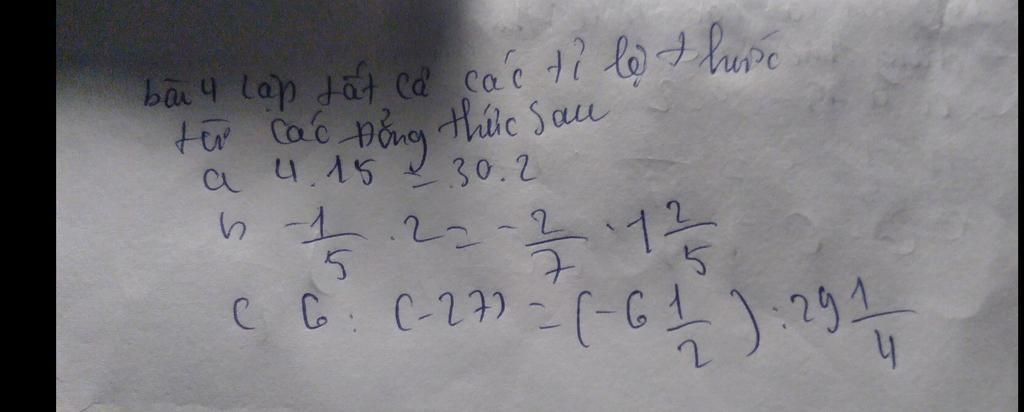 bài 4 lập tất cả các tỉ lệ thức
từ các đẳng thức sau
a 4.15 = 30.2
b -1/5 . 2 = -2/7 . 1 2/5
c 6 : (-27) = (-6 1/2) : 29 1/4